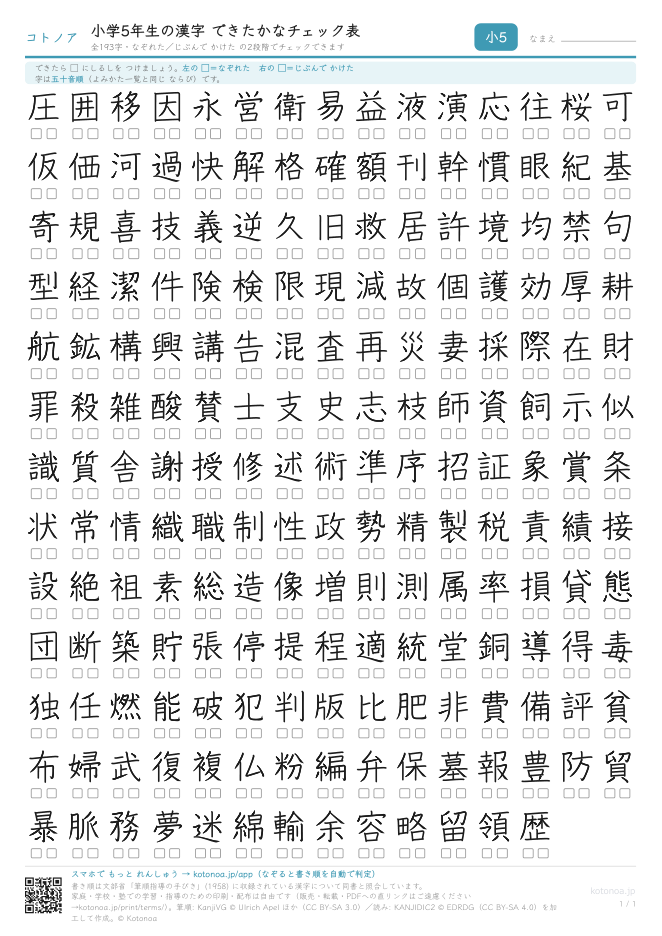 コトノア
小学5年生の漢字 できたかなチェック表
全193字・なぞれた／じぶんで かけた の2段階でチェックできます
小5
なまえ
できたら □ にしるしを つけましょう。左の □＝なぞれた 右の □＝じぶんで かけた
字は五十音順（よみかた一覧と同じ ならび）です。
圧 囲 移 因 永 営 衛 易 益 液 演 応 往 桜 可
仮 価 河 過 快 解 格 確 額 刊 幹 慣 眼 紀 基
寄 規 喜 技 義 逆 久 旧 救 居 許 境 均 禁 句
型 経 潔 件 険 検 限 現 減 故 個 護 効 厚 耕
航 鉱 構 興 講 告 混 査 再 災 妻 採 際 在 財
罪 殺 雑 酸 賛 士 支 史 志 枝 師 資 飼 示 似
識 質 舎 謝 授 修 述 術 準 序 招 証 象 賞 条
状 常 情 織 職 制 性 政 勢 精 製 税 責 績 接
設 絶 祖 素 総 造 像 増 則 測 属 率 損 貸 態
団 断 築 貯 張 停 提 程 適 統 堂 銅 導 得 毒
独 任 燃 能 破 犯 判 版 比 肥 非 費 備 評 貧
布 婦 武 復 複 仏 粉 編 弁 保 墓 報 豊 防 貿
暴 脈 務 夢 迷 綿 輸 余 容 略 留 領 歴
スマホで もっと れんしゅう → kotonoa.jp/app（なぞると書き順を自動で判定）
書き順は文部省「筆順指導の手びき」(1958) に収録されている漢字について同書と照合しています。
家庭・学校・塾での学習・指導のための印刷・配布は自由です（販売・転載・PDFへの直リンクはご遠慮ください
→kotonoa.jp/print/terms/）。筆順: KanjiVG © Ulrich Apel ほか（CC BY-SA 3.0）／読み: KANJIDIC2 © EDRDG（CC BY-SA 4.0）を加
工して作成。© Kotonoa
kotonoa.jp
1 / 1